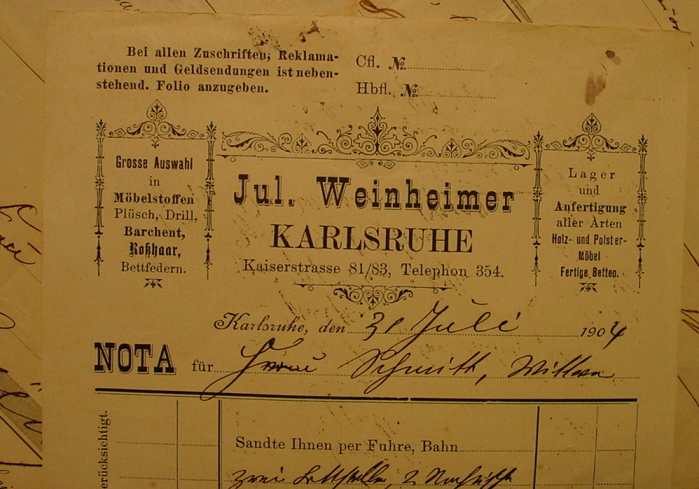 Bei allen Zuschriften, Reklama-
tionen und Geldsendungen ist neben-
stehend. Folio anzugeben.
Cfl. №
Hbfl. №
Grosse Auswahl
in
Möbelstoffen
Plüsch, Drill,
Barchent,
Roßhaar,
Bettfedern.
Jul. Weinheimer
KARLSRUHE
Kaiserstrasse 81/83, Telephon 354.
Lager
und
Anfertigung
aller Arten
Holz- und Polster-
Möbel
Fertige Betten.
Karlsruhe, den 31 Juli 1904
NOTA für Frau Schmitt, Witwe
Sandte Ihnen per Fuhre, Bahn
zwei Bettstelle, 2
erücksichtigt.